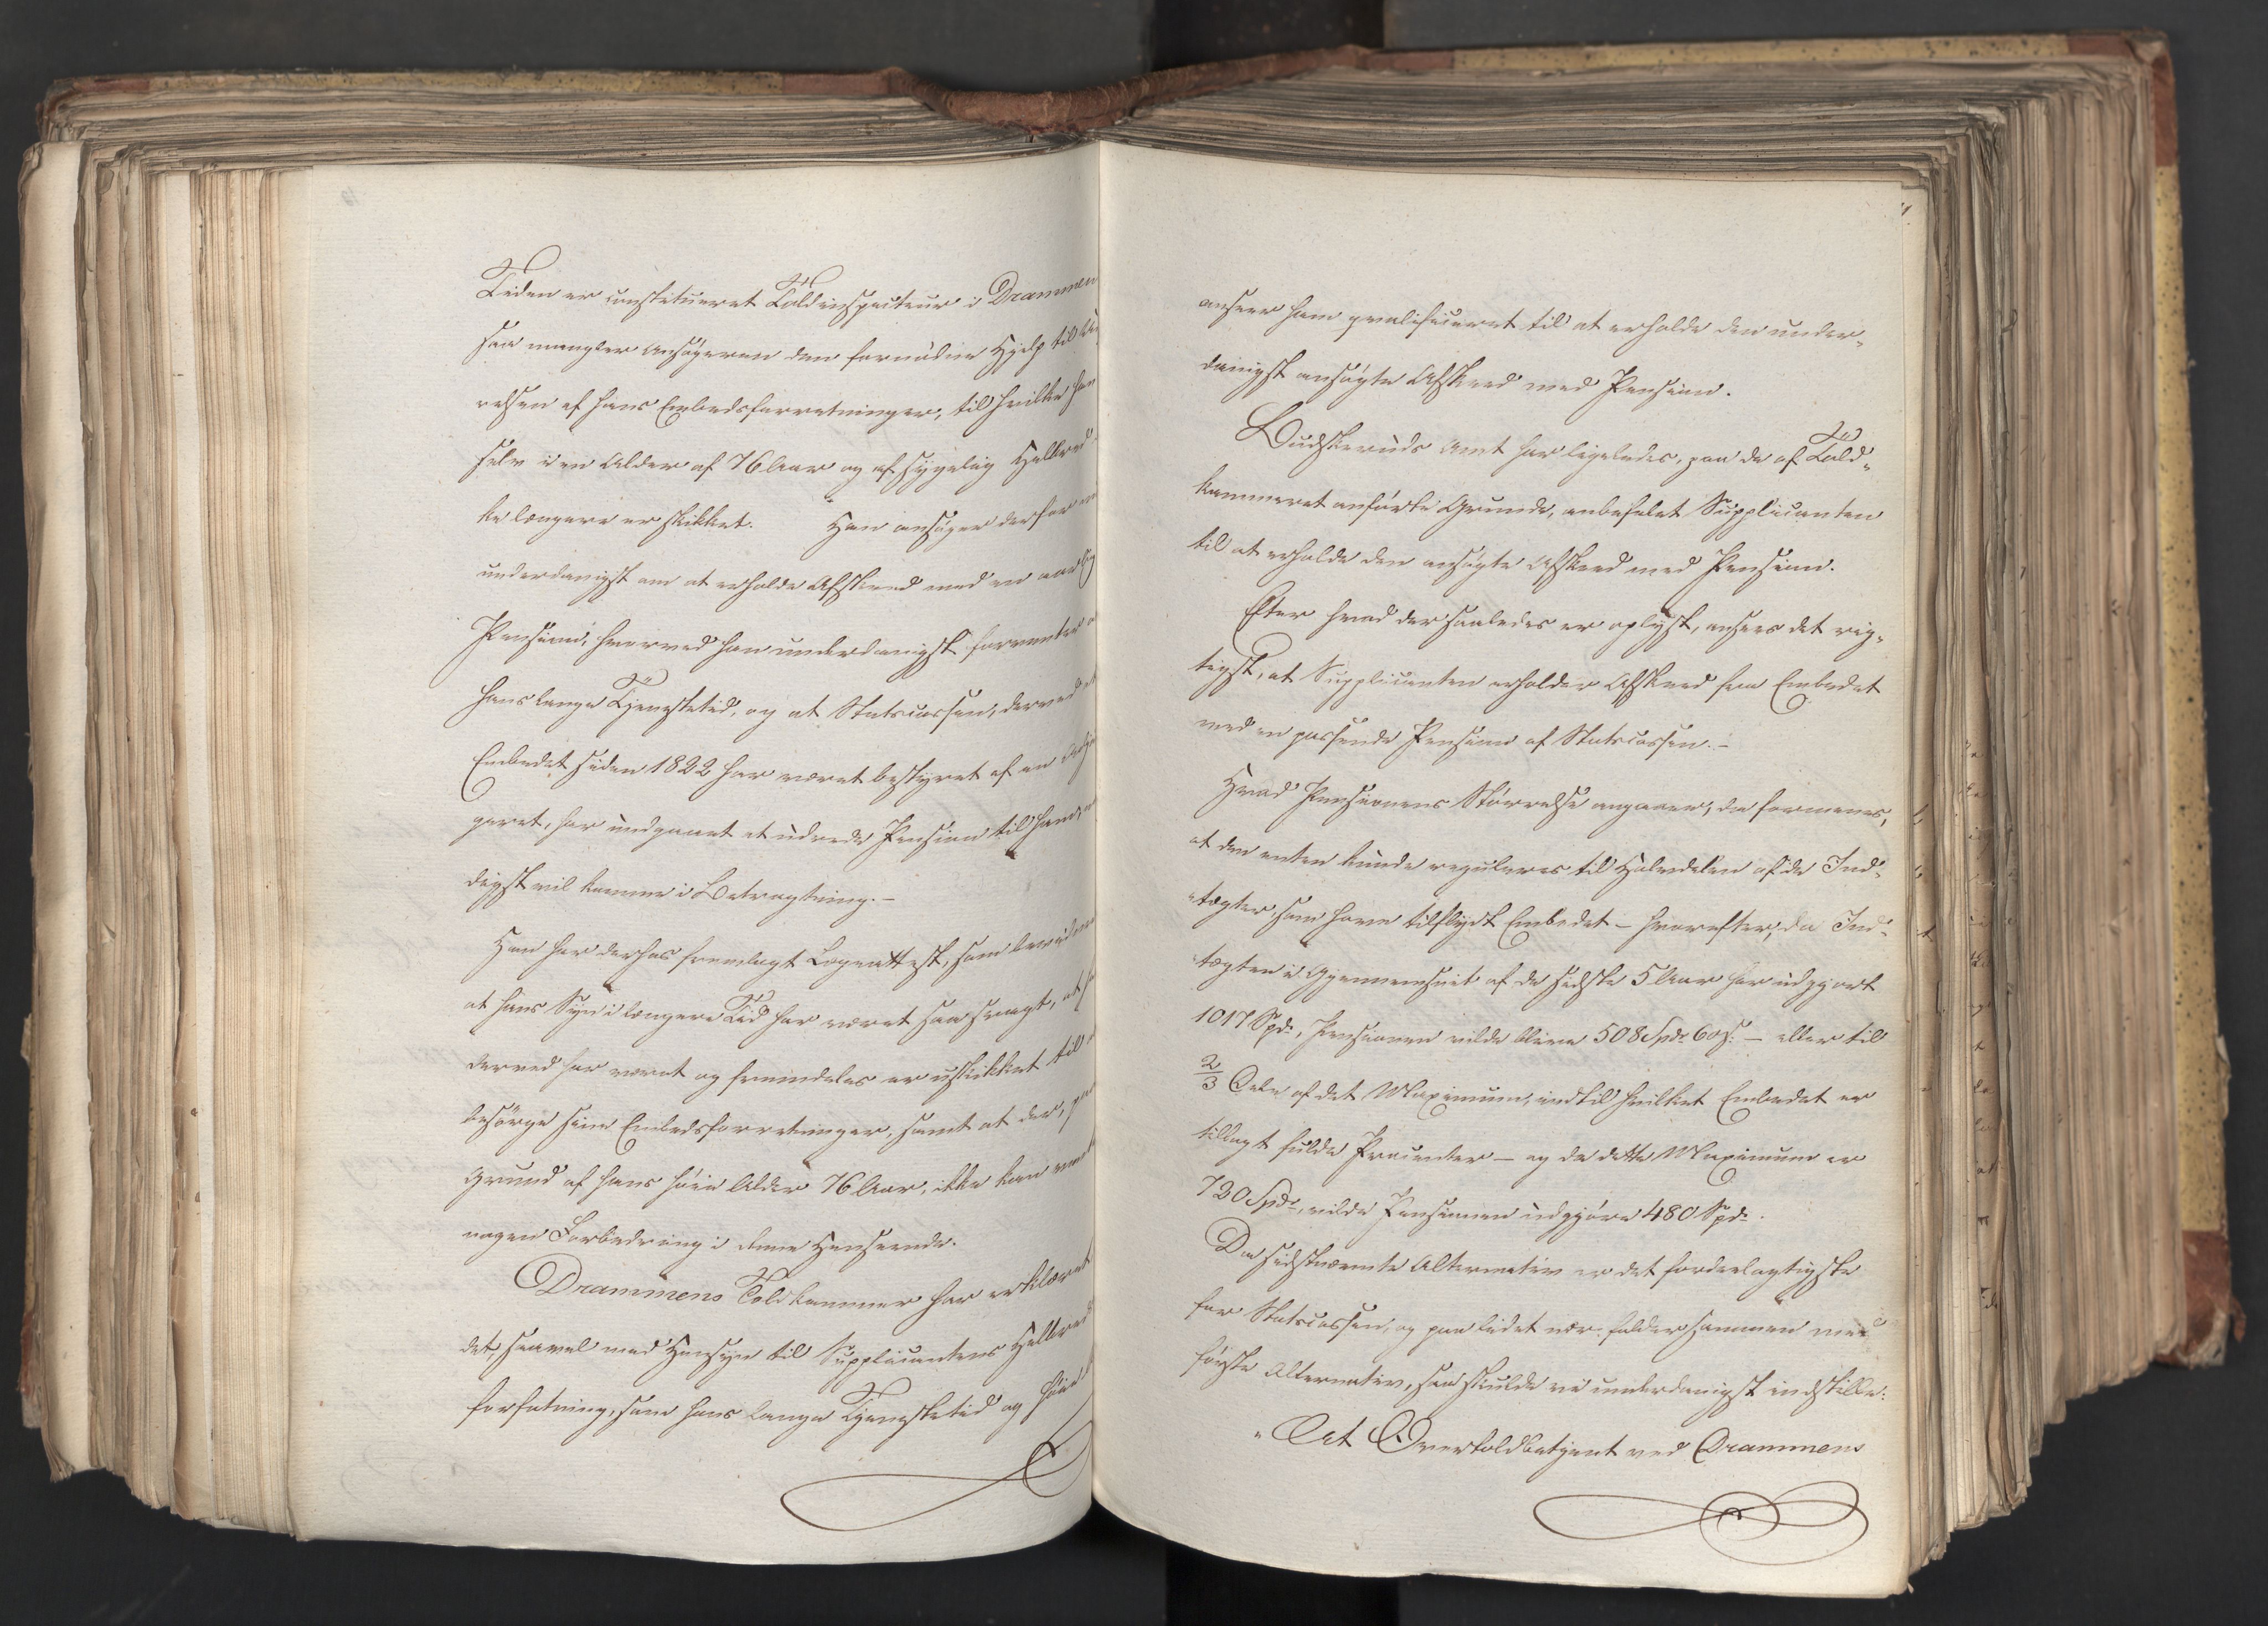 Tiden er constitueret Toldinspecteur i Drammen
saa mangler Ansøgeren den fornødne Hjelp til
relsen af hans Embedsforretninger, til hvilke han
selv i en Alder af 76 Aar og af sygelig Helbred
ke længere er skikket. Han ansøger derfor
underdanigst om at erholde Afskeed med en aarlig
Pension, hvorved han underdanigst forventer
hans lange Tjenestetid, og at Statscassen, derved at
Embedet siden 1822 har været bestyret af en
geret, har undgaaet at udrede Pension til ham,
digst vil komme i Betragtning.–
Han har derhos fremlagt Lægeattest, som
at hans Syn i længere Tid har været saa svagt, at
derved har været og fremdeles er uskikket til
besørge sine Embedsforretninger, samt at der, paa
Grund af hans høie Alder 76 Aar, ikke kan
nogen Forbedring i denne Henseende.
Drammens Toldkammer har erklæret
det, saavel med Hensyn til Supplicantens Helbred
forfatning, som hans lange Tjenestetid og høie
anseer ham qvalificeret til at erholde den under„
danigst ansøgte Afskeed med Pension.
Budskeruds Amt har ligeledes, paa de af Told„
kammeret anførte Grunde, anbefalet Supplicanten
til at erholde den ansøgte Afskeed med Pension.
Efter hvad der saaledes er oplyst, ansees det rig„
tigst, at Supplicanten erholder Afskeed fra Embedet
med en passende Pension af Statscassen.–
Hvad Pensionens Størrelse angaaer, da formenes,
at den enten kunde reguleres til Halvdelen af de Ind„
tægter, som have tilflydt Embedet – hvorefter, da Ind„
tægten i Gjennemsnit af de sidste 5 Aar har udgjort
1017 Spd., Pensionen vilde blive 508 Spd. 60 s. – eller til
2/3 Dele af det Maximum, indtil hvilket Embedet er
tillagt fulde Procenter – og da dette Maximum er
720 Spd., vilde Pensionen udgjøre 480 Spd.
Da sidstnævnte Alternativ er det fordeelagtigste
for Statscassen, og paa lidet nær falder sammen med
første Alternativ, saa skulde vi underdanigst indstille:
„At Overtoldbetjent ved Drammens